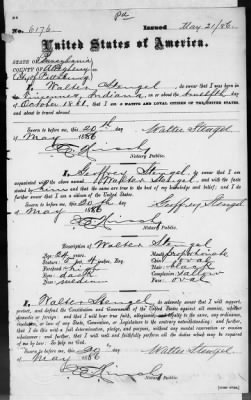 pd
No. 6176. Issued May 21/86
United States of America.
STATE OF Pennsylvania
COUNTY OF Allegheny
City of Pittsburg
I, Walter Stengel, do swear that I was born in
Indiana, on or about the day
of October 1861, that I am a NATIVE AND LOYAL CITIZEN OF THE UNITED STATES,
and about to travel abroad.
Sworn to before me, this 20th day Walter Stengel
of May 1886
Notary Public.
I, Godfrey Stengel, do swear that I am
acquainted with the above named Walter Stengel, and with the facts
stated by him and that the same are true to the best of my knowledge and belief; and I do
further swear that I am a citizen of the United States.
Sworn to before me, this 20th day Godfrey Stengel
of May 1886
Notary Public.
Description of Walter Stengel
Age: 24 years. Mouth: proportionate
Stature: 5 feet inches, Eng. Chin: oval
Forehead: high Hair: black
Eyes: dark Complexion: sallow
Nose: medium Face: oval
I, Walter Stengel, do solemnly swear that I will support,
protect, and defend the Constitution and Government of the United States against all enemies, whether
domestic or foreign; and that I will bear true faith, allegiance, and loyalty to the same, any ordinance,
resolution, or law of any State, Convention, or Legislature to the contrary notwithstanding; and further,
that I do this with a full determination, pledge, and purpose, without any mental reservation or evasion
whatsoever; and further, that I will well and faithfully perform all the duties which may be required
of me by law: So help me God.
Sworn to before me, this 20 day Walter Stengel
of May 1886
Notary Public.